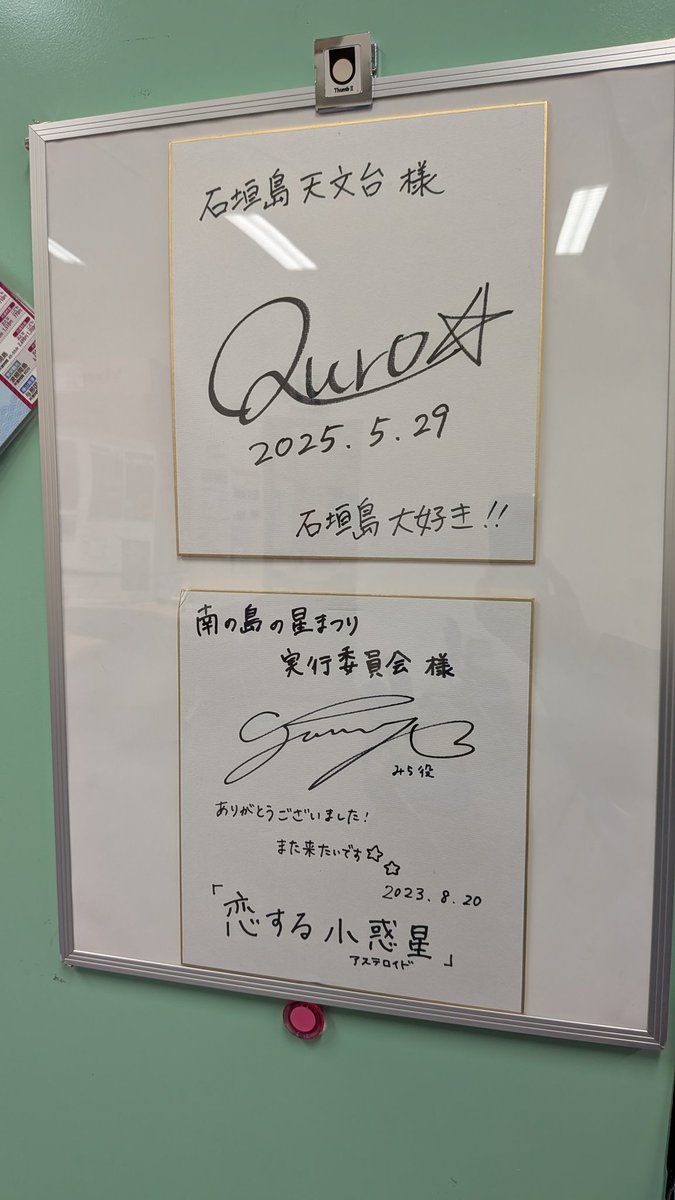 Thumb II
石垣島天文台 様
Quro☆
2025.5.29
石垣島大好き!!
南の島の星まつり
実行委員会 様
みら役
ありがとうございました!
また来たいです☆
☆
2023.8.20
「恋する小惑星」
アステロイド